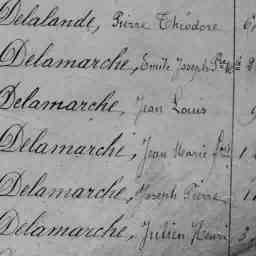 Delalande, Pierre Théodore
Delamarche, Emile Joseph
Delamarche, Jean Louis
Delamarche, Jean Marie
Delamarche, Joseph Pierre
Delamarche, Julien Henri